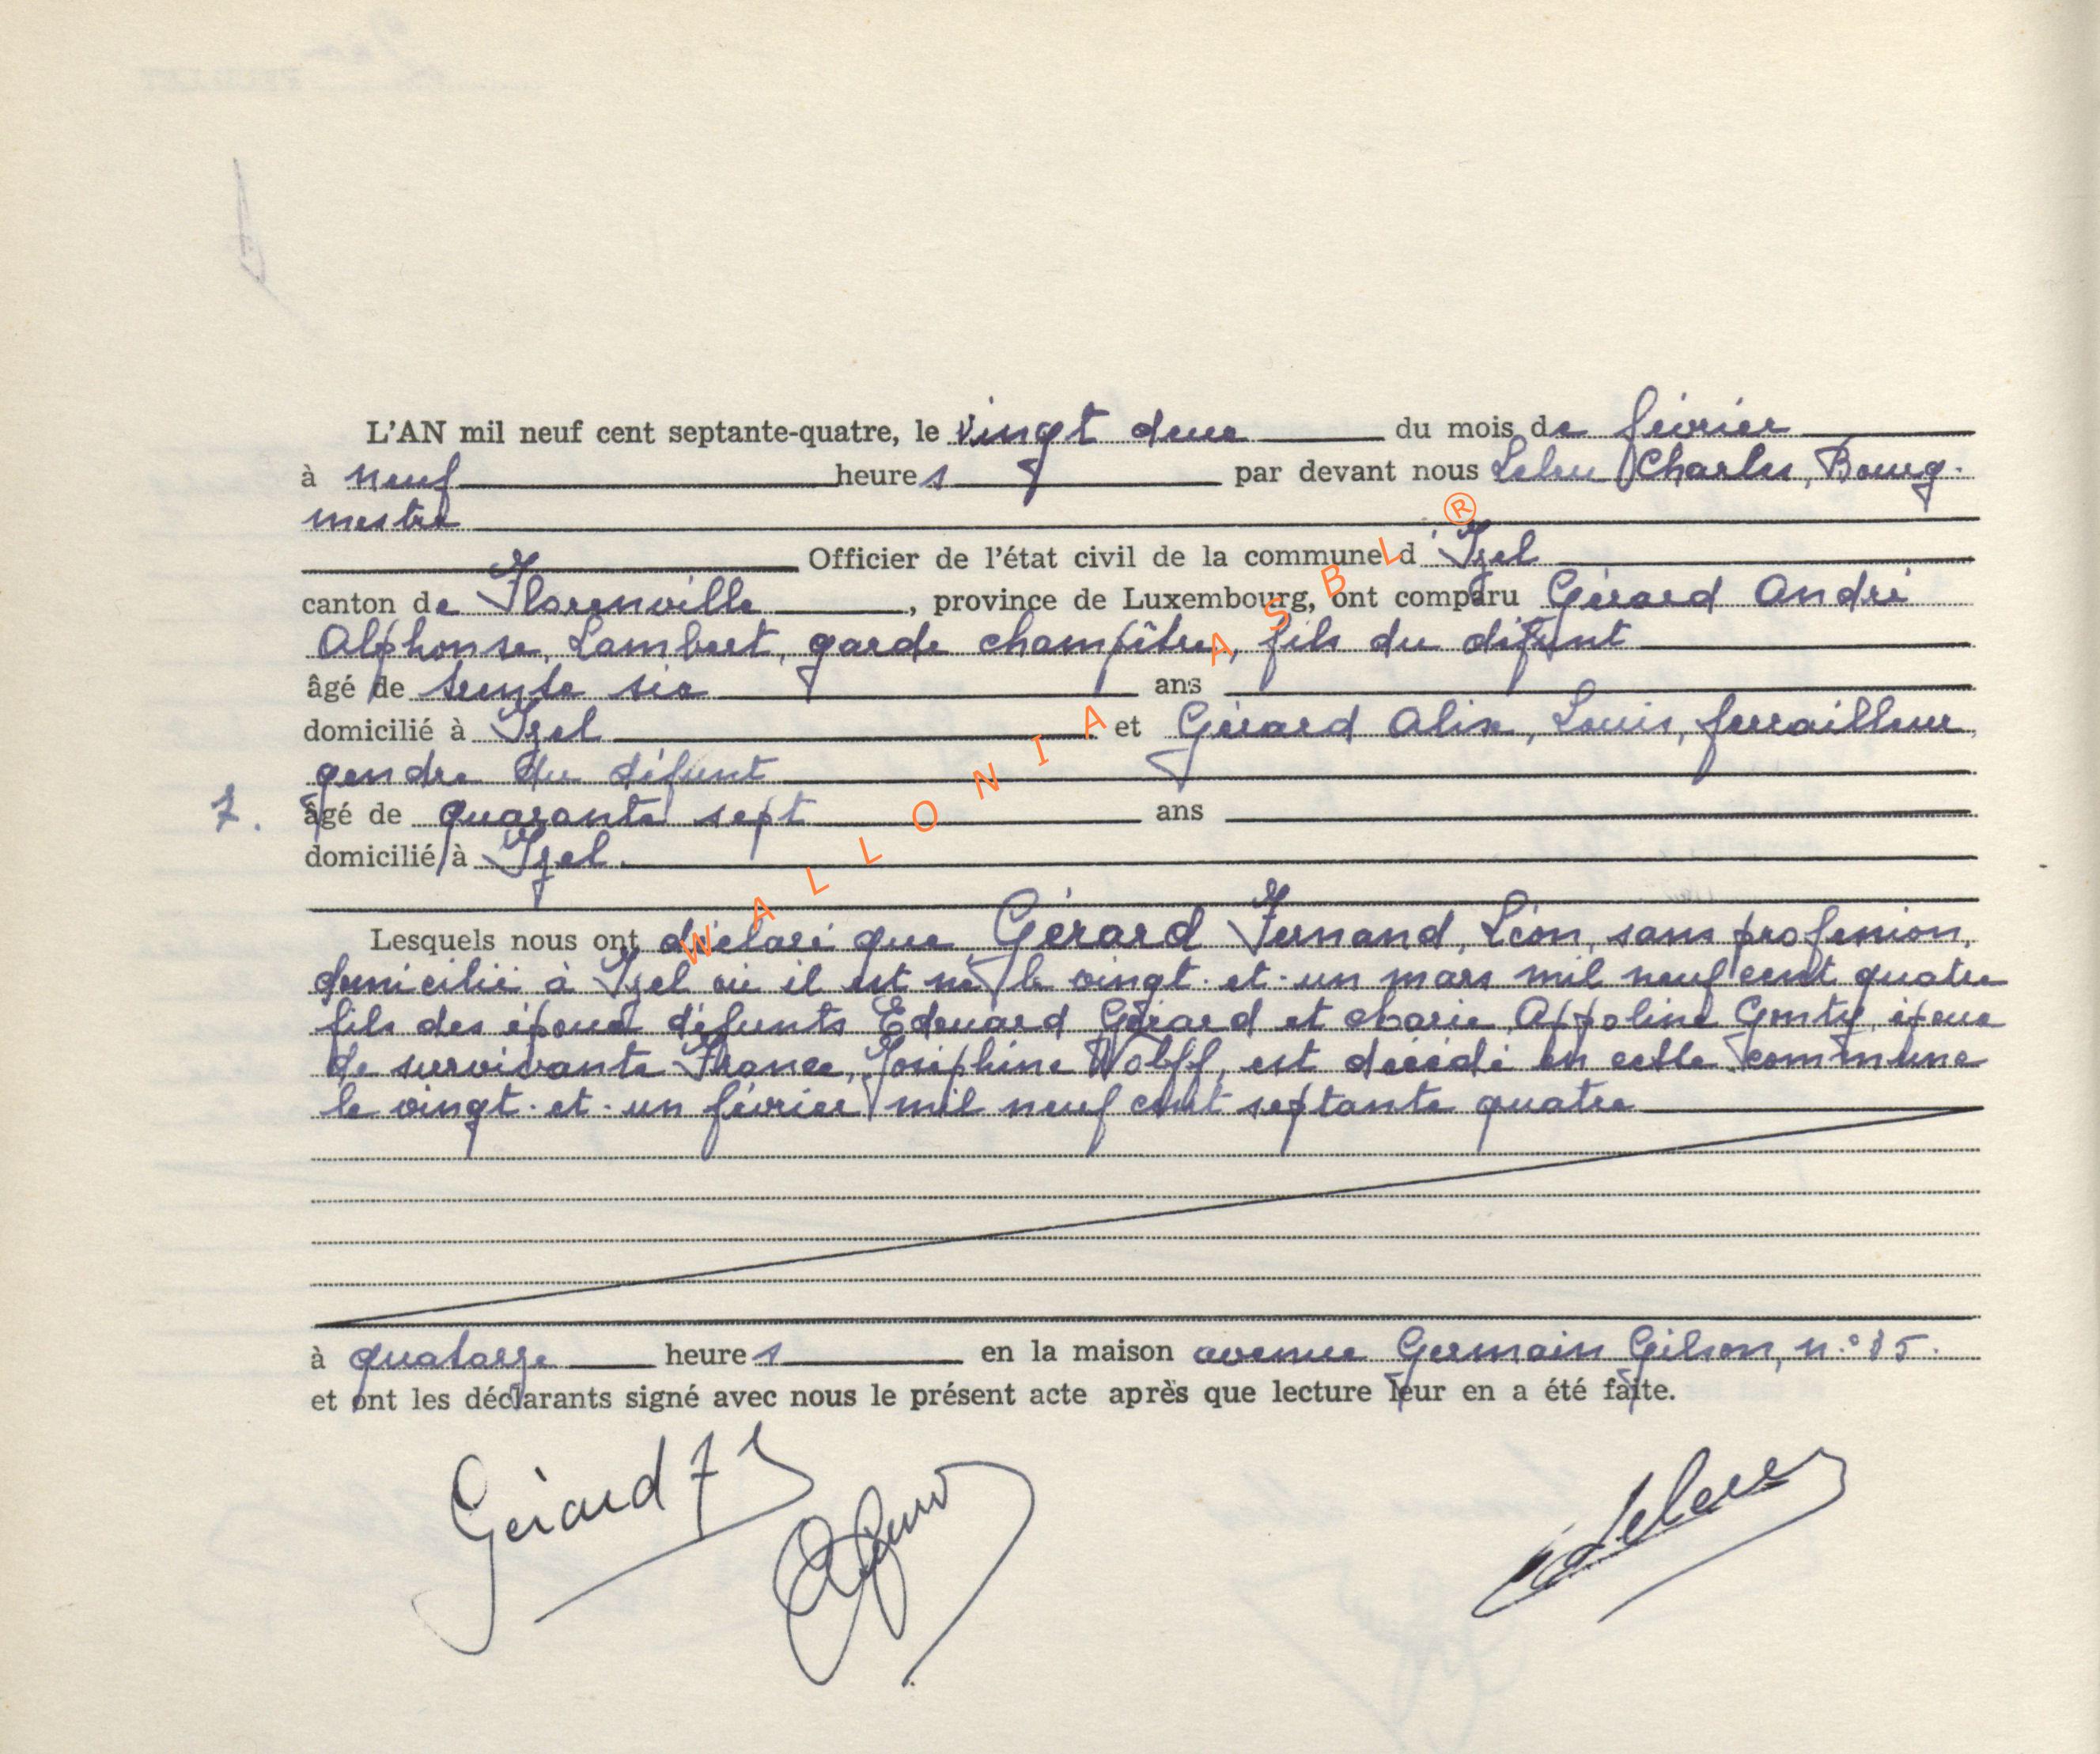 L'AN mil neuf cent septante-quatre, le vingt deux du mois de février
à neuf heures par devant nous Leleu Charles, Bourg-
mestre
Officier de l'état civil de la commune d'Izel
canton de Florenville, province de Luxembourg, ont comparu Gérard André
Alphonse, Lambert, garde champêtre, fils du défunt
âgé de trente six ans
domicilié à Izel et Gérard Alix, Louis, ferrailleur,
gendre du défunt
7. âgé de quarante sept ans
domicilié à Izel.
Lesquels nous ont déclaré que Gérard Fernand, Léon, sans profession,
domicilié à Izel où il est né le vingt-et-un mars mil neuf cent quatre
fils des époux défunts Edouard Gérard et Marie, Appoline Gonty, époux
de survivante France, Joséphine Wolff, est décédé en cette commune
le vingt-et-un février mil neuf cent septante quatre
à quatorze heures en la maison avenue Germain Gilson, n.° 15.
et ont les déclarants signé avec nous le présent acte après que lecture leur en a été faite.
Gérard
Leleu
WALLONIA ASBL ®